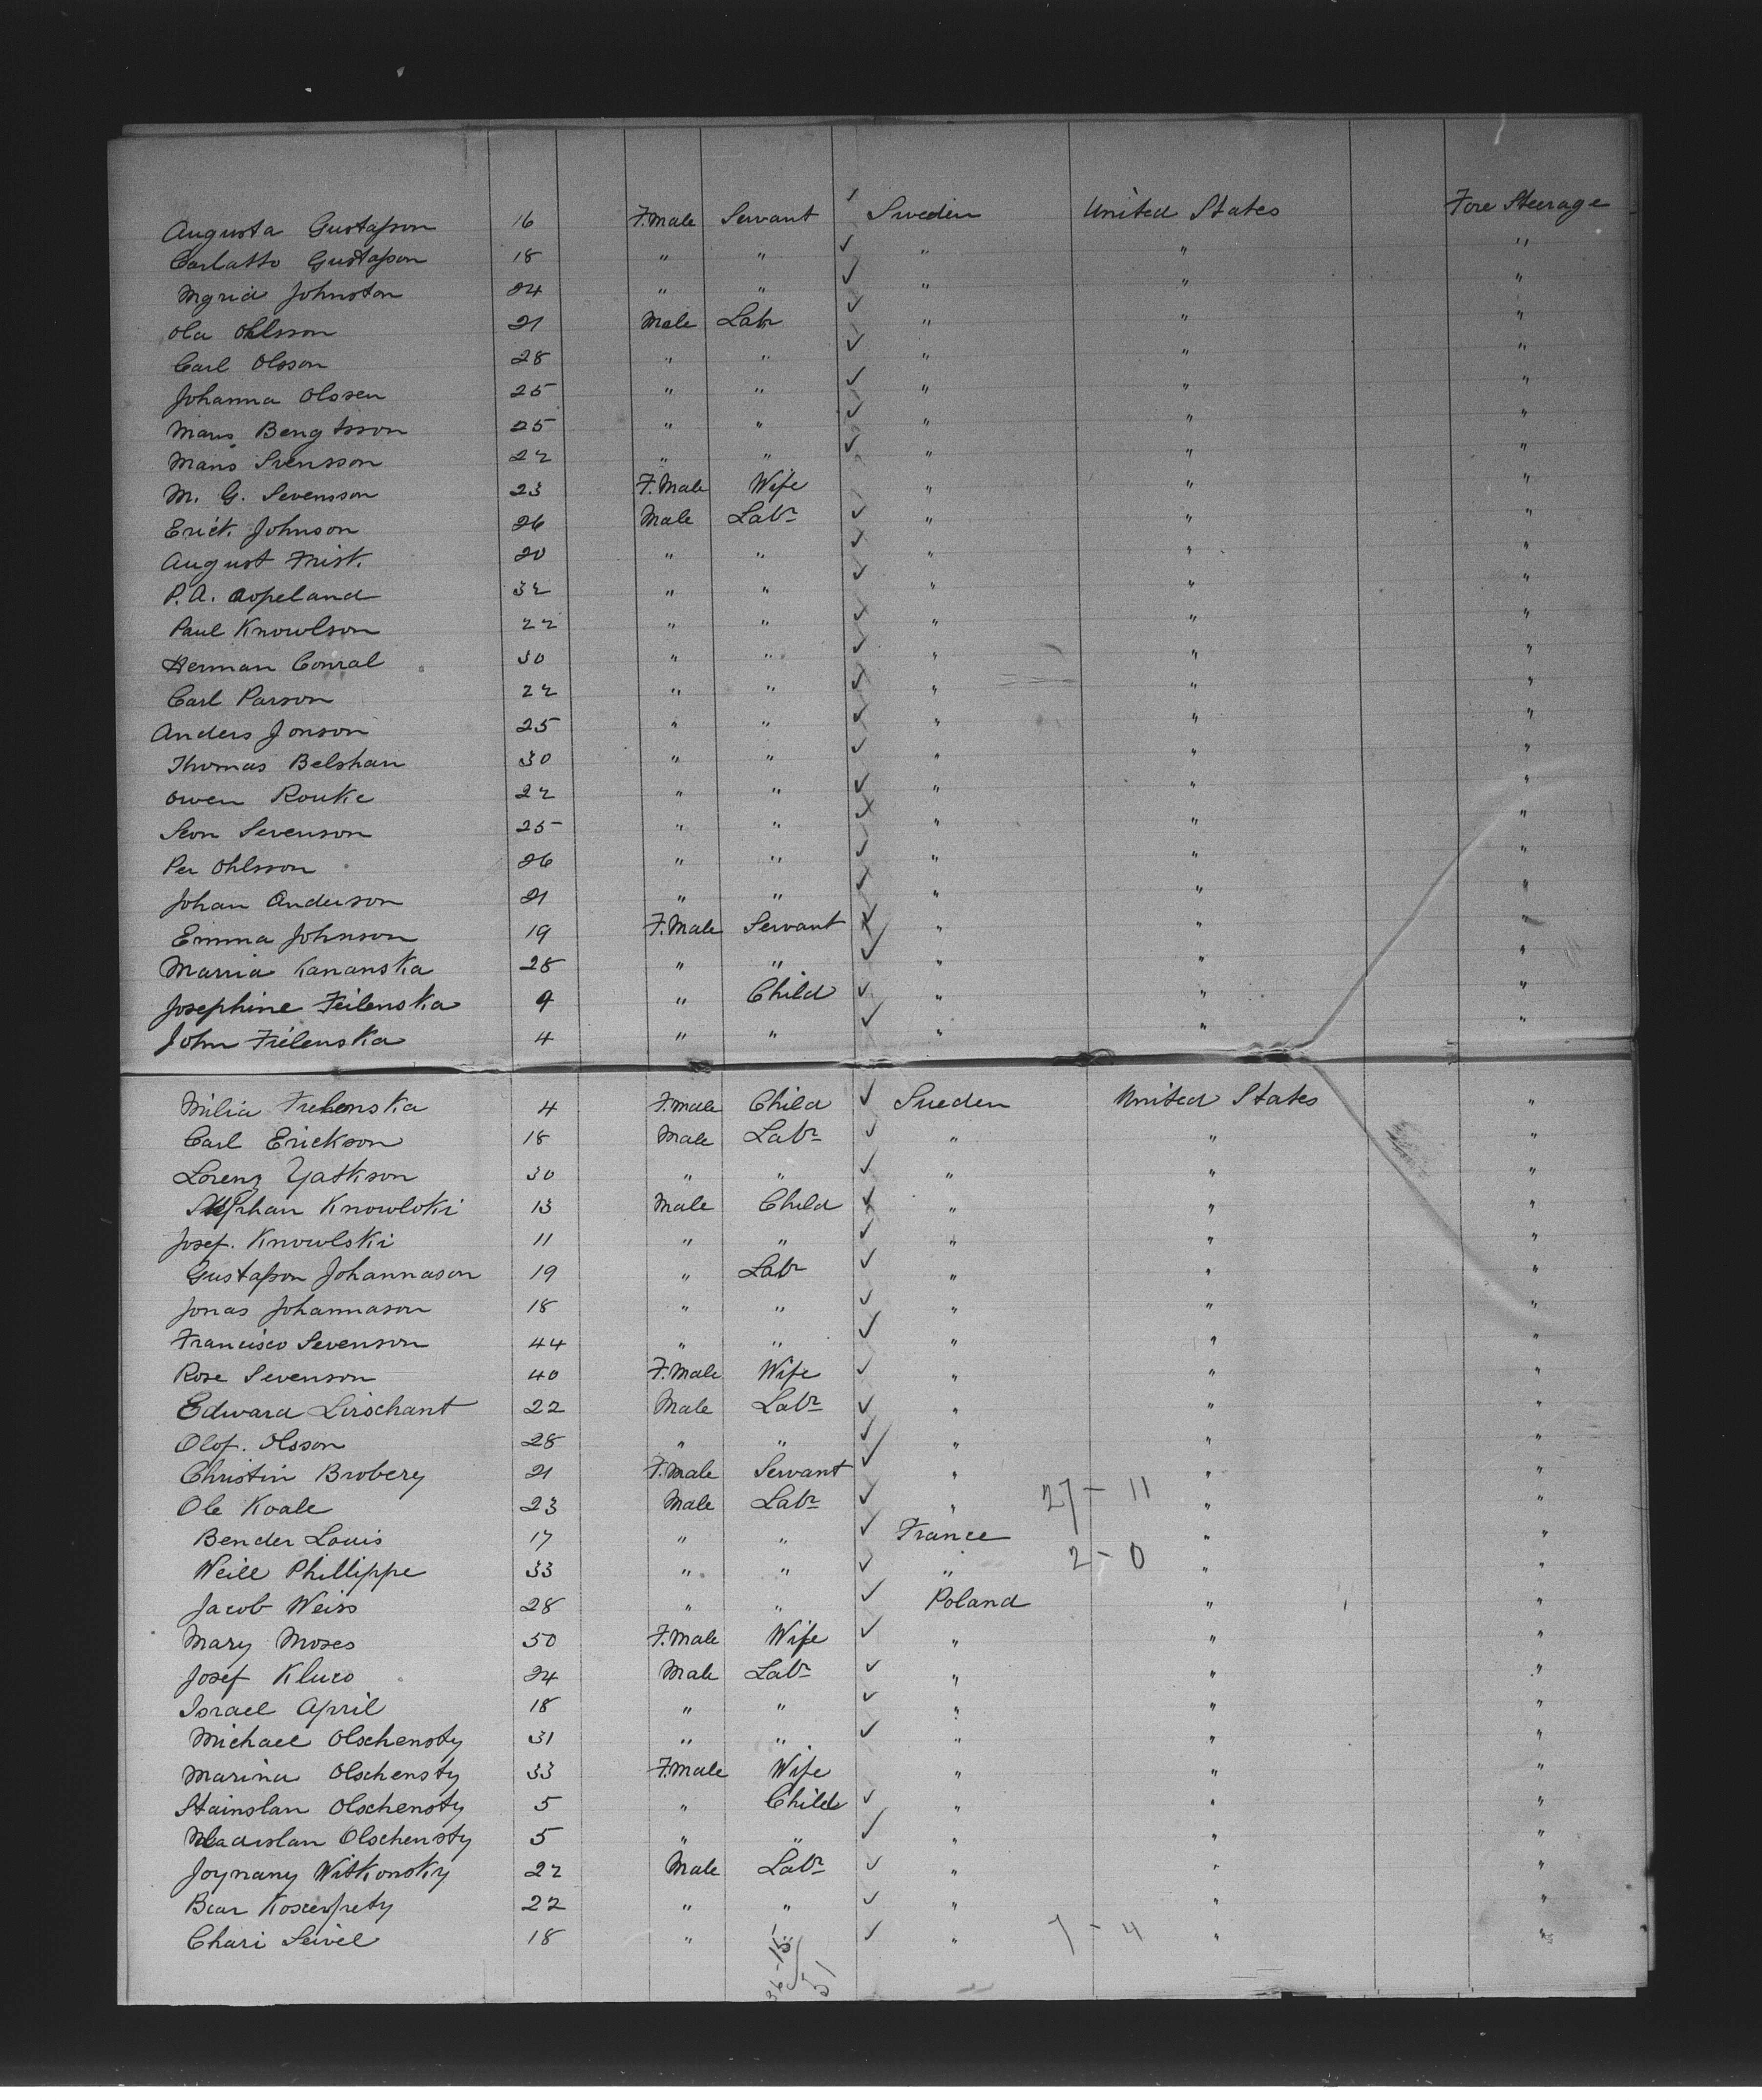 Augusta Gustafson 16 F.Male Servant ✓ Sweden United States Fore Steerage
Carlatto Gustafson 18 " " ✓ " " "
Ingrid Johnston 24 " " ✓ " " "
Ola Ohlsson 21 Male Labr ✓ " " "
Carl Olsson 28 " " ✓ " " "
Johanna Olssen 25 " " ✓ " " "
Mans Bengtsson 25 " " ✓ " " "
Mans Svensson 22 " " ✓ " " "
M. G. Sevensson 23 F.Male Wife " " "
Erick Johnson 26 Male Labr ✓ " " "
August Frist. 20 " " ✓ " " "
P.A. Copeland 32 " " ✓ " " "
Paul Knowlson 22 " " ✓ " " "
Herman Conral 30 " " ✓ " " "
Carl Parson 22 " " ✓ " " "
Anders Jonson 25 " " ✓ " " "
Thomas Belshan 30 " " ✓ " " "
Owen Rouke 22 " " ✓ " " "
Seon Sevenson 25 " " ✓ " " "
Per Ohlsson 26 " " ✓ " " "
Johan Anderson 21 " " ✓ " " "
Emma Johnson 19 F.Male Servant ✓ " " "
Marria Kananska 28 " " ✓ " " "
Josephine Feilenska 9 " Child ✓ " " "
John Frilenska 4 " " ✓ " " "
Milia 4 F.Male Child ✓ Sueden United States "
Carl Erickson 18 Male Labr ✓ " " "
Lorenz Yatkson 30 " " ✓ " " "
Knowloki 13 Male Child ✓ " " "
Josef. Knowlski 11 " " ✓ " " "
Gustafson Johannason 19 " Labr ✓ " " "
Jonas Johannason 18 " " ✓ " " "
Francisco Sevenson 44 " " ✓ " " "
Rose Sevenson 40 F.Male Wife ✓ " " "
Edward Lirschant 22 Male Labr ✓ " " "
Olof. Olsson 28 " " ✓ " " "
Christin Brobery 21 F.Male Servant ✓ " " "
Ole Koale 23 Male Labr ✓ " 27 - 11 " "
Bender Louis 17 " " ✓ France " "
Weill Phillippe 33 " " ✓ " 2 - 0 " "
Jacob Weiss 28 " " ✓ Poland " "
Mary Moses 50 F.Male Wife ✓ " " "
Josef Kluco 24 Male Labr ✓ " " "
Israel April 18 " " ✓ " " "
Michael Olschensty 31 " " ✓ " " "
Marina Olschensty 33 F.Male Wife " " "
Stainslan Olschensty 5 " Child ✓ " " "
Wladislan Olschensty 5 " " ✓ " " "
Joynany Witkonsky 22 Male Labr ✓ " " "
22 " " ✓ " " "
Chari Seivel 18 " " ✓ " 7 - 4 " "
36-15
51